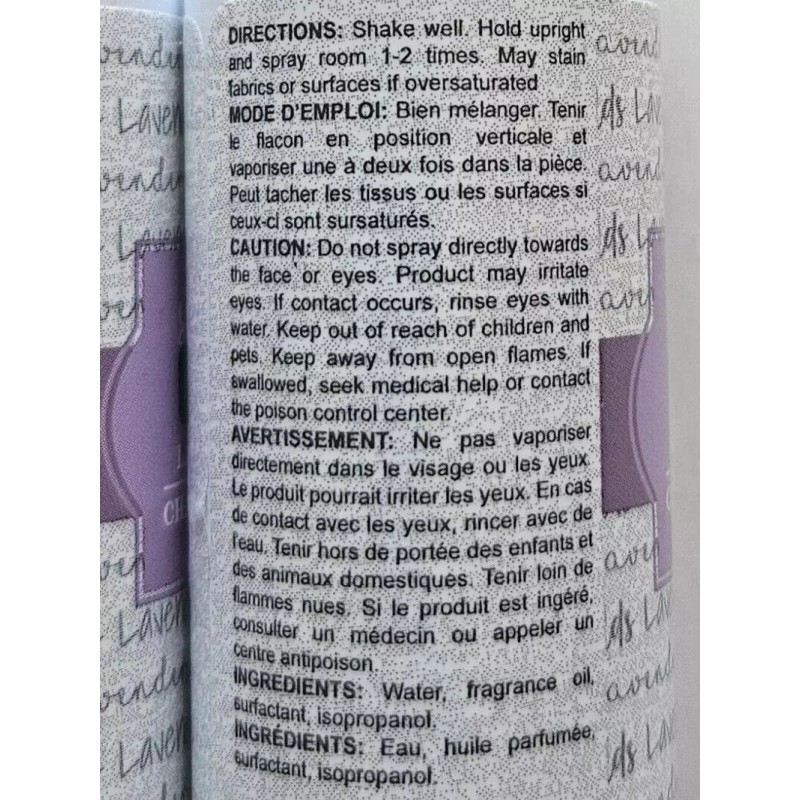 DIRECTIONS: Shake well. Hold upright
and spray room 1-2 times. May stain
fabrics or surfaces if oversaturated
MODE D'EMPLOI: Bien mélanger. Tenir
le flacon en position verticale et
vaporiser une à deux fois dans la pièce.
Peut tacher les tissus ou les surfaces si
ceux-ci sont sursaturés.
CAUTION: Do not spray directly towards
the face or eyes. Product may irritate
eyes. If contact occurs, rinse eyes with
water. Keep out of reach of children and
pets. Keep away from open flames. If
swallowed, seek medical help or contact
the poison control center.
AVERTISSEMENT: Ne pas vaporiser
directement dans le visage ou les yeux.
Le produit pourrait irriter les yeux. En cas
de contact avec les yeux, rincer avec de
l'eau. Tenir hors de portée des enfants et
des animaux domestiques. Tenir loin de
flammes nues. Si le produit est ingéré,
consulter un médecin ou appeler un
centre antipoison.
INGREDIENTS: Water, fragrance oil,
surfactant, isopropanol.
INGRÉDIENTS: Eau, huile parfumée,
surfactant, isopropanol.